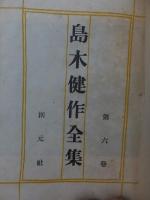 島木健作全集
第六巻
創元社